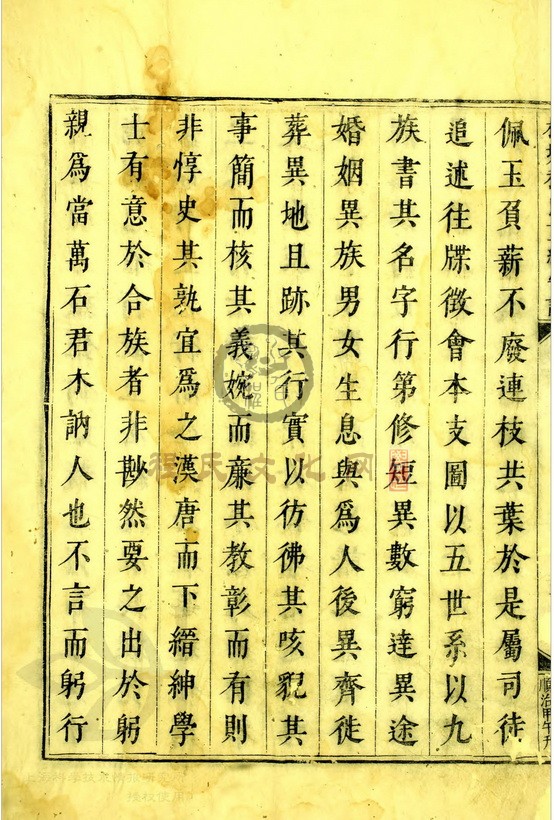 佩玉負薪不廢連枝共葉於是屬司徒
追述往牒徵會本支圖以五世系以九
族書其名字行第修短異數窮達異途
婚姻異族男女生息與爲人後異齊徙
葬異地且跡其行實以彷彿其咳貌其
事簡而核其義婉而廉其教彰而有則
非惇史其孰宜爲之漢唐而下縉紳學
士有意於合族者非尠然要之出於躬
親爲當萬石君木訥人也不言而躬行
順治甲午刊
程氏文化网
授权使用